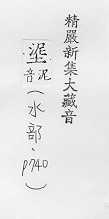 精嚴新集大藏音
埿泥音(水部、p740)